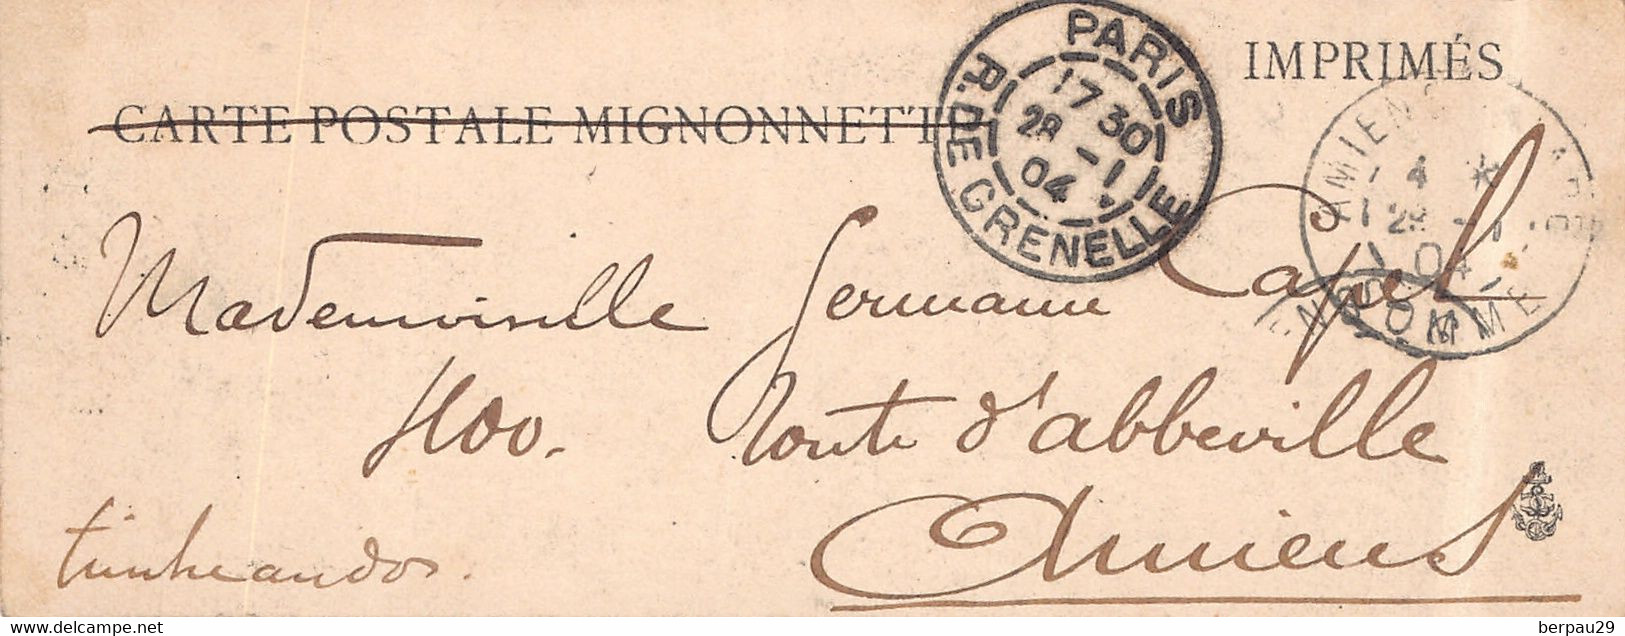 IMPRIMÉS
CARTE POSTALE MIGNONNETTE
PARIS
R. DE GRENELLE
17 30
28 -1
04
AMIENS
4 *
28 -1
04
SOMME
Mademoiselle Germaine Capel
400. Route d'abbeville
Amiens
timbre au dos.
www.delcampe.net
berpau29